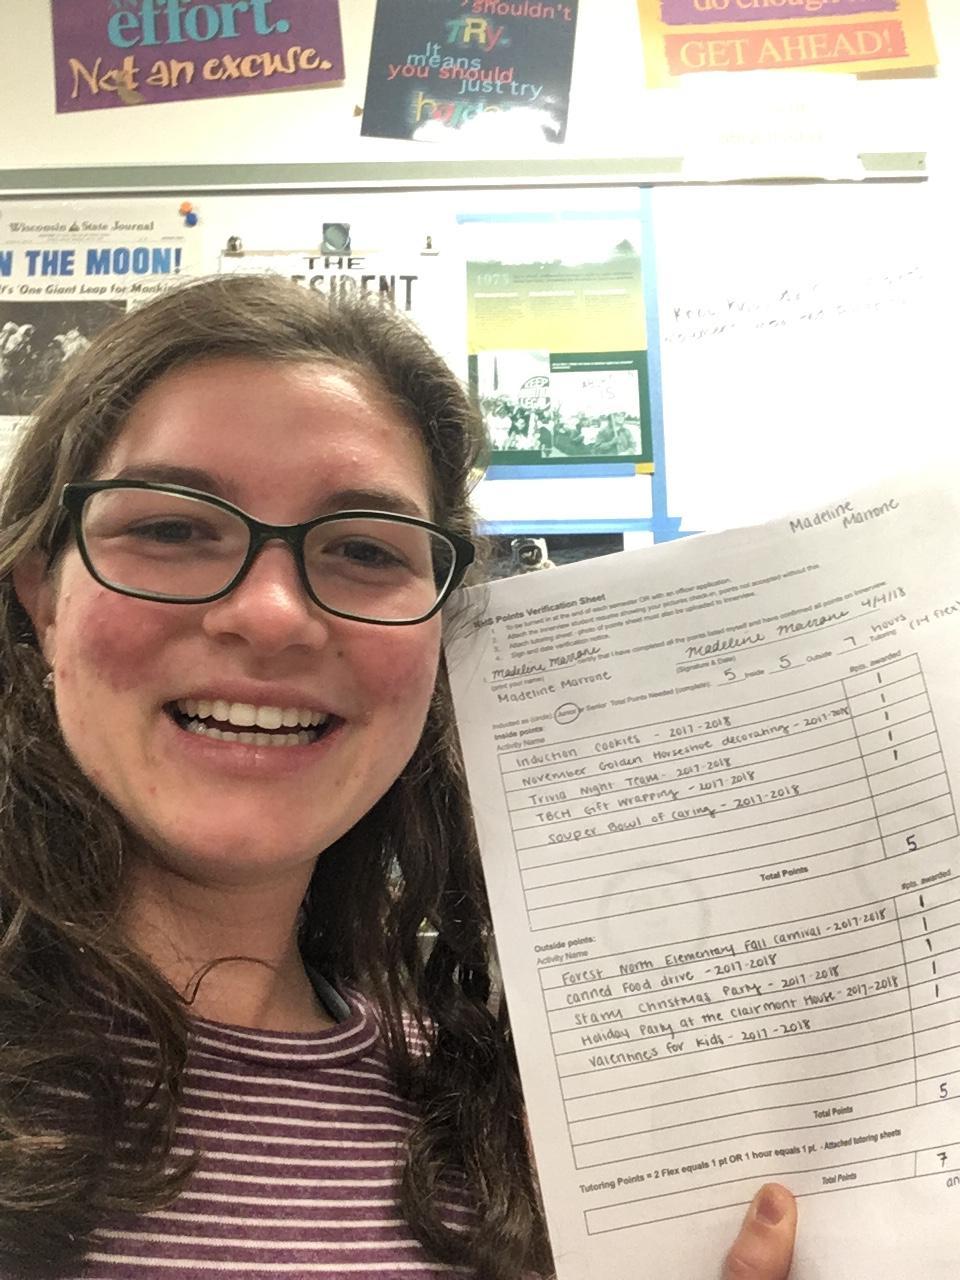 effort.
Not an excuse.
shouldn't
TRY.
It
means
you should
just try
harder
do enough
GET AHEAD!
Wisconsin State Journal
N THE MOON!
It's 'One Giant Leap for Mankin
THE
ESIDENT
1973
KEEP
LEGAL
Madeline
Marrone
NHS Points Verification Sheet
1. To be turned in at the end of each semester OR with an officer application.
2. Attach the Innerview student resume showing your pictures check-in, points not accepted without this
3. Attach tutoring sheet - photo of points sheet must also be uploaded to Innerview.
4. Sign and date verification notice.
I, Madeline Marrone certify that I have completed all the points listed myself and have confirmed all points on Innerview.
Madeline Marrone 4/4/18
(print your name)
(Signature & Date)
Madeline Marrone
Included as (circle) Junior or Senior Total Points Needed (complete): 5 Inside 5 Outside 7 hours Tutoring (14 flex)
Inside points:
Activity Name #pts. awarded
Induction Cookies - 2017-2018 1
November Golden Horseshoe decorating - 2017-2018 1
Trivia Night Team - 2017-2018 1
TBCH Gift Wrapping - 2017-2018 1
Souper Bowl of Caring - 2017-2018 1
Total Points 5
Outside points:
Activity Name #pts. awarded
Forest North Elementary Fall Carnival - 2017-2018 1
Canned Food drive - 2017-2018 1
Starry Christmas Party - 2017-2018 1
Holiday Party at the Clairmont House - 2017-2018 1
Valentines for Kids - 2017-2018 1
Total Points 5
Tutoring Points = 2 Flex equals 1 pt OR 1 hour equals 1 pt. - Attached tutoring sheets
Total Points 7